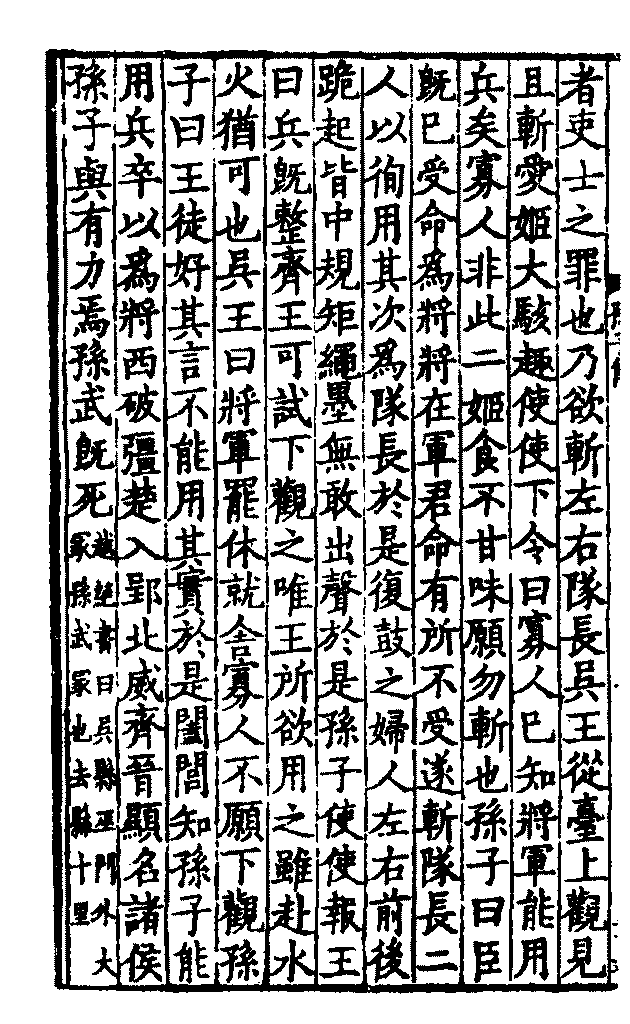 者吏士之罪也乃欲斬左右隊長吳王從臺上觀見
且斬愛姬大駭趣使使下令曰寡人已知將軍能用
兵矣寡人非此二姬食不甘味願勿斬也孫子曰臣
旣已受命爲將將在軍君命有所不受遂斬隊長二
人以徇用其次爲隊長於是復鼓之婦人左右前後
跪起皆中規矩繩墨無敢出聲於是孫子使使報王
曰兵旣整齊王可試下觀之唯王所欲用之雖赴水
火猶可也吳王曰將軍罷休就舍寡人不願下觀孫
子曰王徒好其言不能用其實於是闔閭知孫子能
用兵卒以爲將西破彊楚入郢北威齊晉顯名諸侯
孫子與有力焉孫武旣死
越絕書曰吳縣巫門外大
冢孫武冢也去縣十里